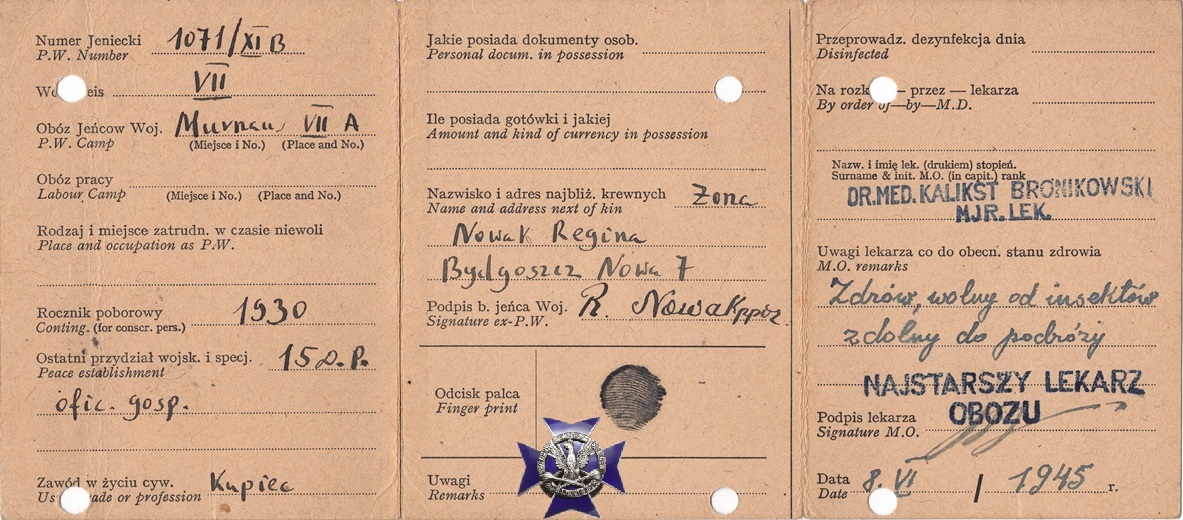 Numer Jeniecki 1071/XI B
P.W. Number
VII
Obóz Jeńcow Woj. Murnau VII A
P.W. Camp (Miejsce i No.) (Place and No.)
Obóz pracy
Labour Camp (Miejsce i No.) (Place and No.)
Rodzaj i miejsce zatrudn. w czasie niewoli
Place and occupation as P.W.
Rocznik poborowy 1930
Conting. (for conscr. pers.)
Ostatni przydział wojsk. i specj. 15 D.P.
Peace establishment
ofic. gosp.
Zawód w życiu cyw. Kupiec
or profession
Jakie posiada dokumenty osob.
Personal docum. in possession
Ile posiada gotówki i jakiej
Amount and kind of currency in possession
Nazwisko i adres najbliż. krewnych Żona
Name and address next of kin
Nowak Regina
Bydgoszcz Nowa 7
Podpis b. jeńca Woj. R. Nowak ppor.
Signature ex-P.W.
Odcisk palca
Finger print
Uwagi
Remarks
Przeprowadz. dezynfekcja dnia
Disinfected
Na – przez — lekarza
By order of—by—M.D.
Nazw. i imię lek. (drukiem) stopień.
Surname & init. M.O. (in capit.) rank
DR.MED.KALIKST BRONIKOWSKI
MJR.LEK.
Uwagi lekarza co do obecn. stanu zdrowia
M.O. remarks
Zdrów, wolny od insektów
zdolny do podróży
NAJSTARSZY LEKARZ
OBOZU
Podpis lekarza
Signature M.O.
Data 8. VI / 1945 r.
Date